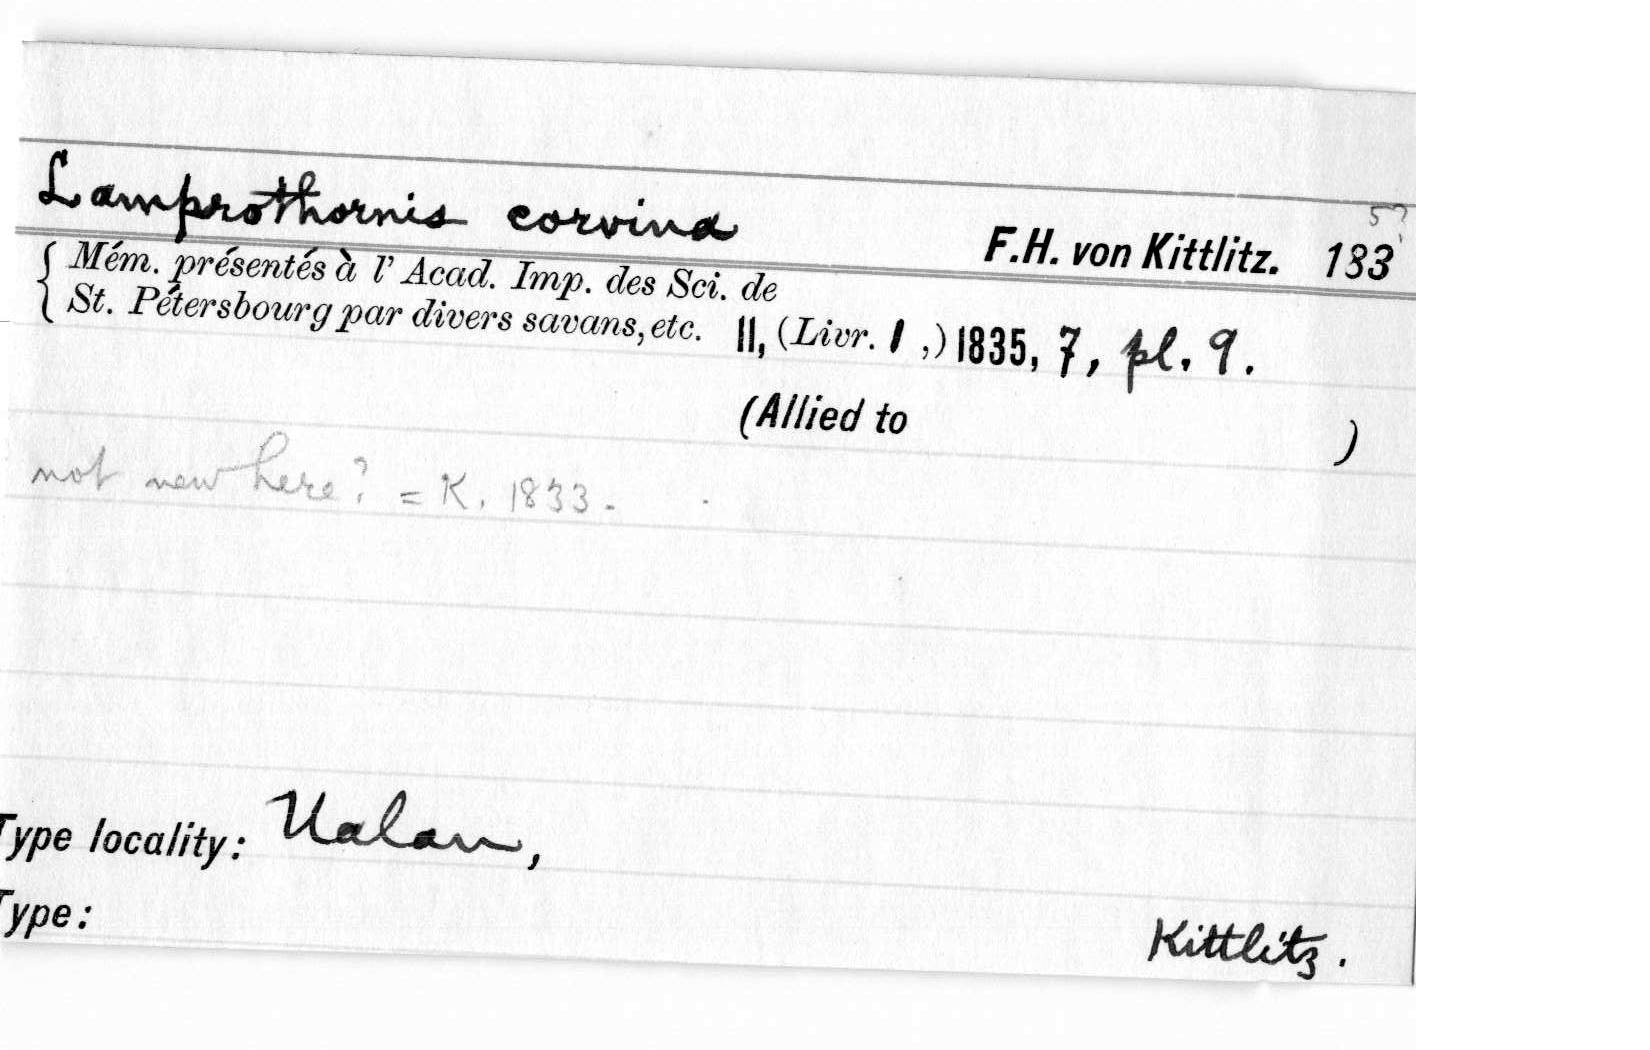 Lamprothornis corvina
5?
F.H. von Kittlitz. 1833
Mém. présentés à l' Acad. Imp. des Sci. de
St. Pétersbourg par divers savans, etc. II, (Livr. 1 ,) 1835, 7, pl. 9.
(Allied to )
not new here? = K. 1833.
Type locality: Ualan,
Type:
Kittlitz.